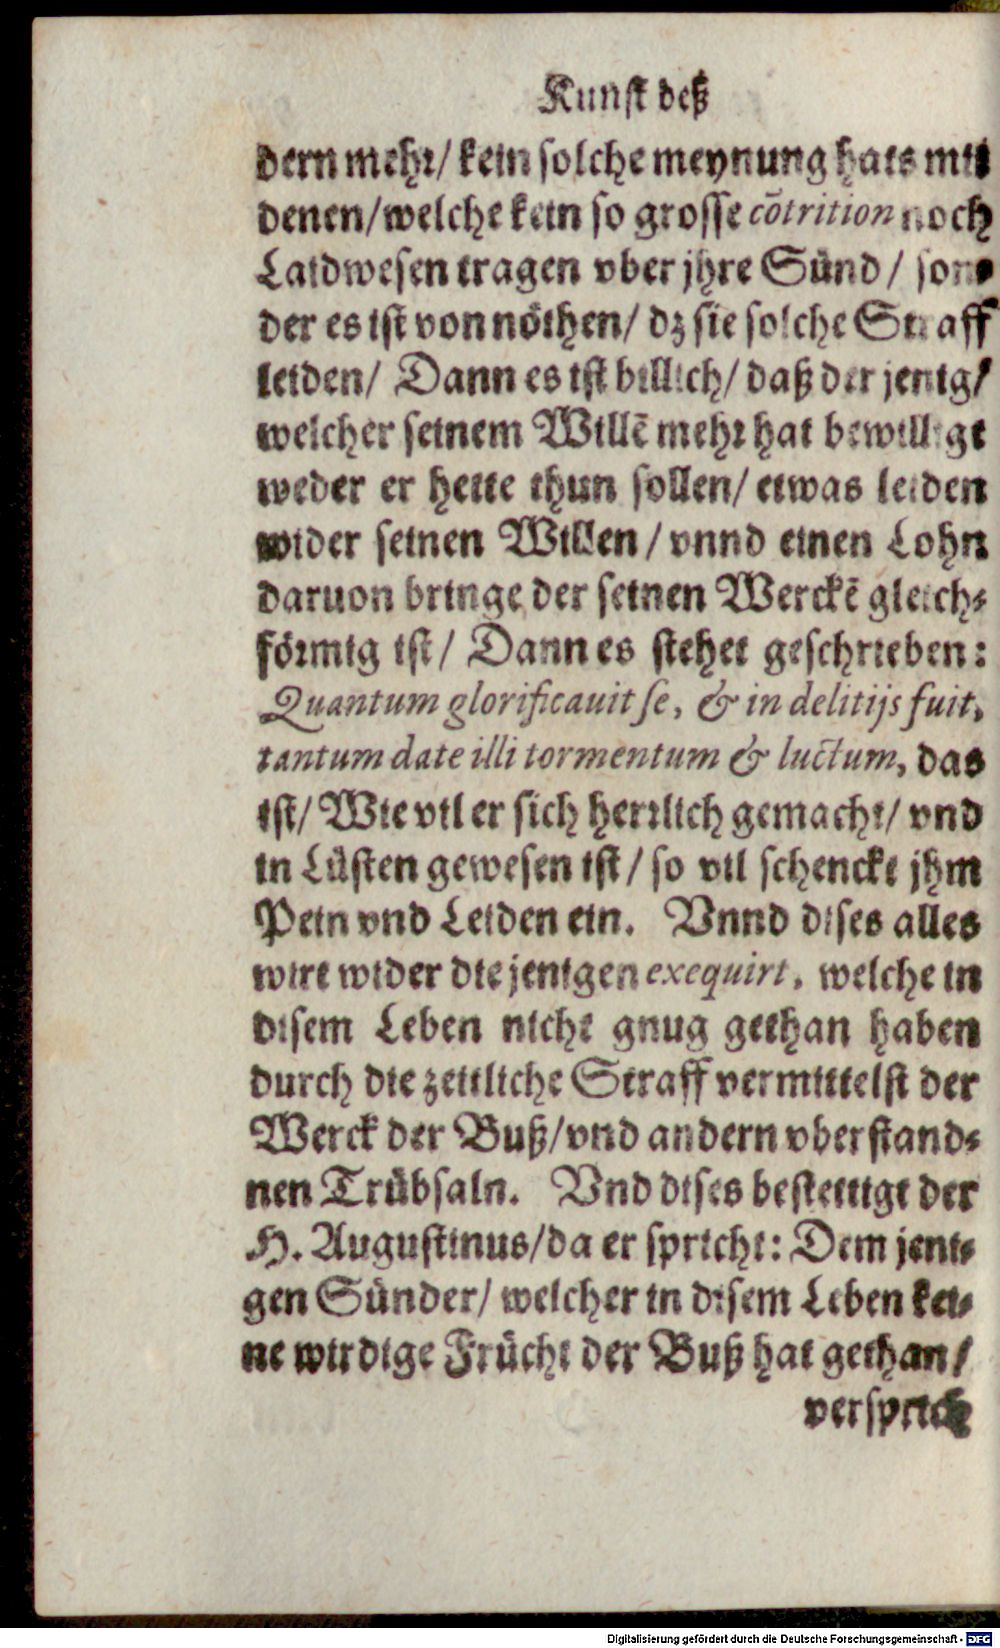 Kunst deß
dern mehr/ kein solche meynung hats mit
denen/ welche kein so grosse cõtrition noch
Laidwesen tragen vber jhre Sünd/ son⸗
der es ist von nöthen/ dz sie solche Straff
leiden/ Dann es ist billich/ daß der jenig/
welcher seinem Willẽ mehr hat bewilligt
weder er hette thun sollen/ etwas leiden
wider seinen Willen/ vnnd einen Lohn
daruon bringe der seinen Werckẽ gleich⸗
förmig ist/ Dann es stehet geschrieben:
Quantum glorificauit se, & in delitijs fuit,
tantum date illi tormentum & luctum, das
ist/ Wie vil er sich herrlich gemacht/ vnd
in Lüsten gewesen ist/ so vil schenckt jhm
Pein vnd Leiden ein. Vnnd dises alles
wirt wider die jenigen exequirt, welche in
disem Leben nicht gnug gethan haben
durch die zeitliche Straff vermittelst der
Werck der Buß/ vnd andern vberstand⸗
nen Trübsaln. Vnd dises bestettigt der
H. Augustinus/ da er spricht: Dem jeni⸗
gen Sünder/ welcher in disem Leben kei⸗
ne wirdige Frücht der Buß hat gethan/
versprich
Digitalisierung gefördert durch die Deutsche Forschungsgemeinschaft - DFG